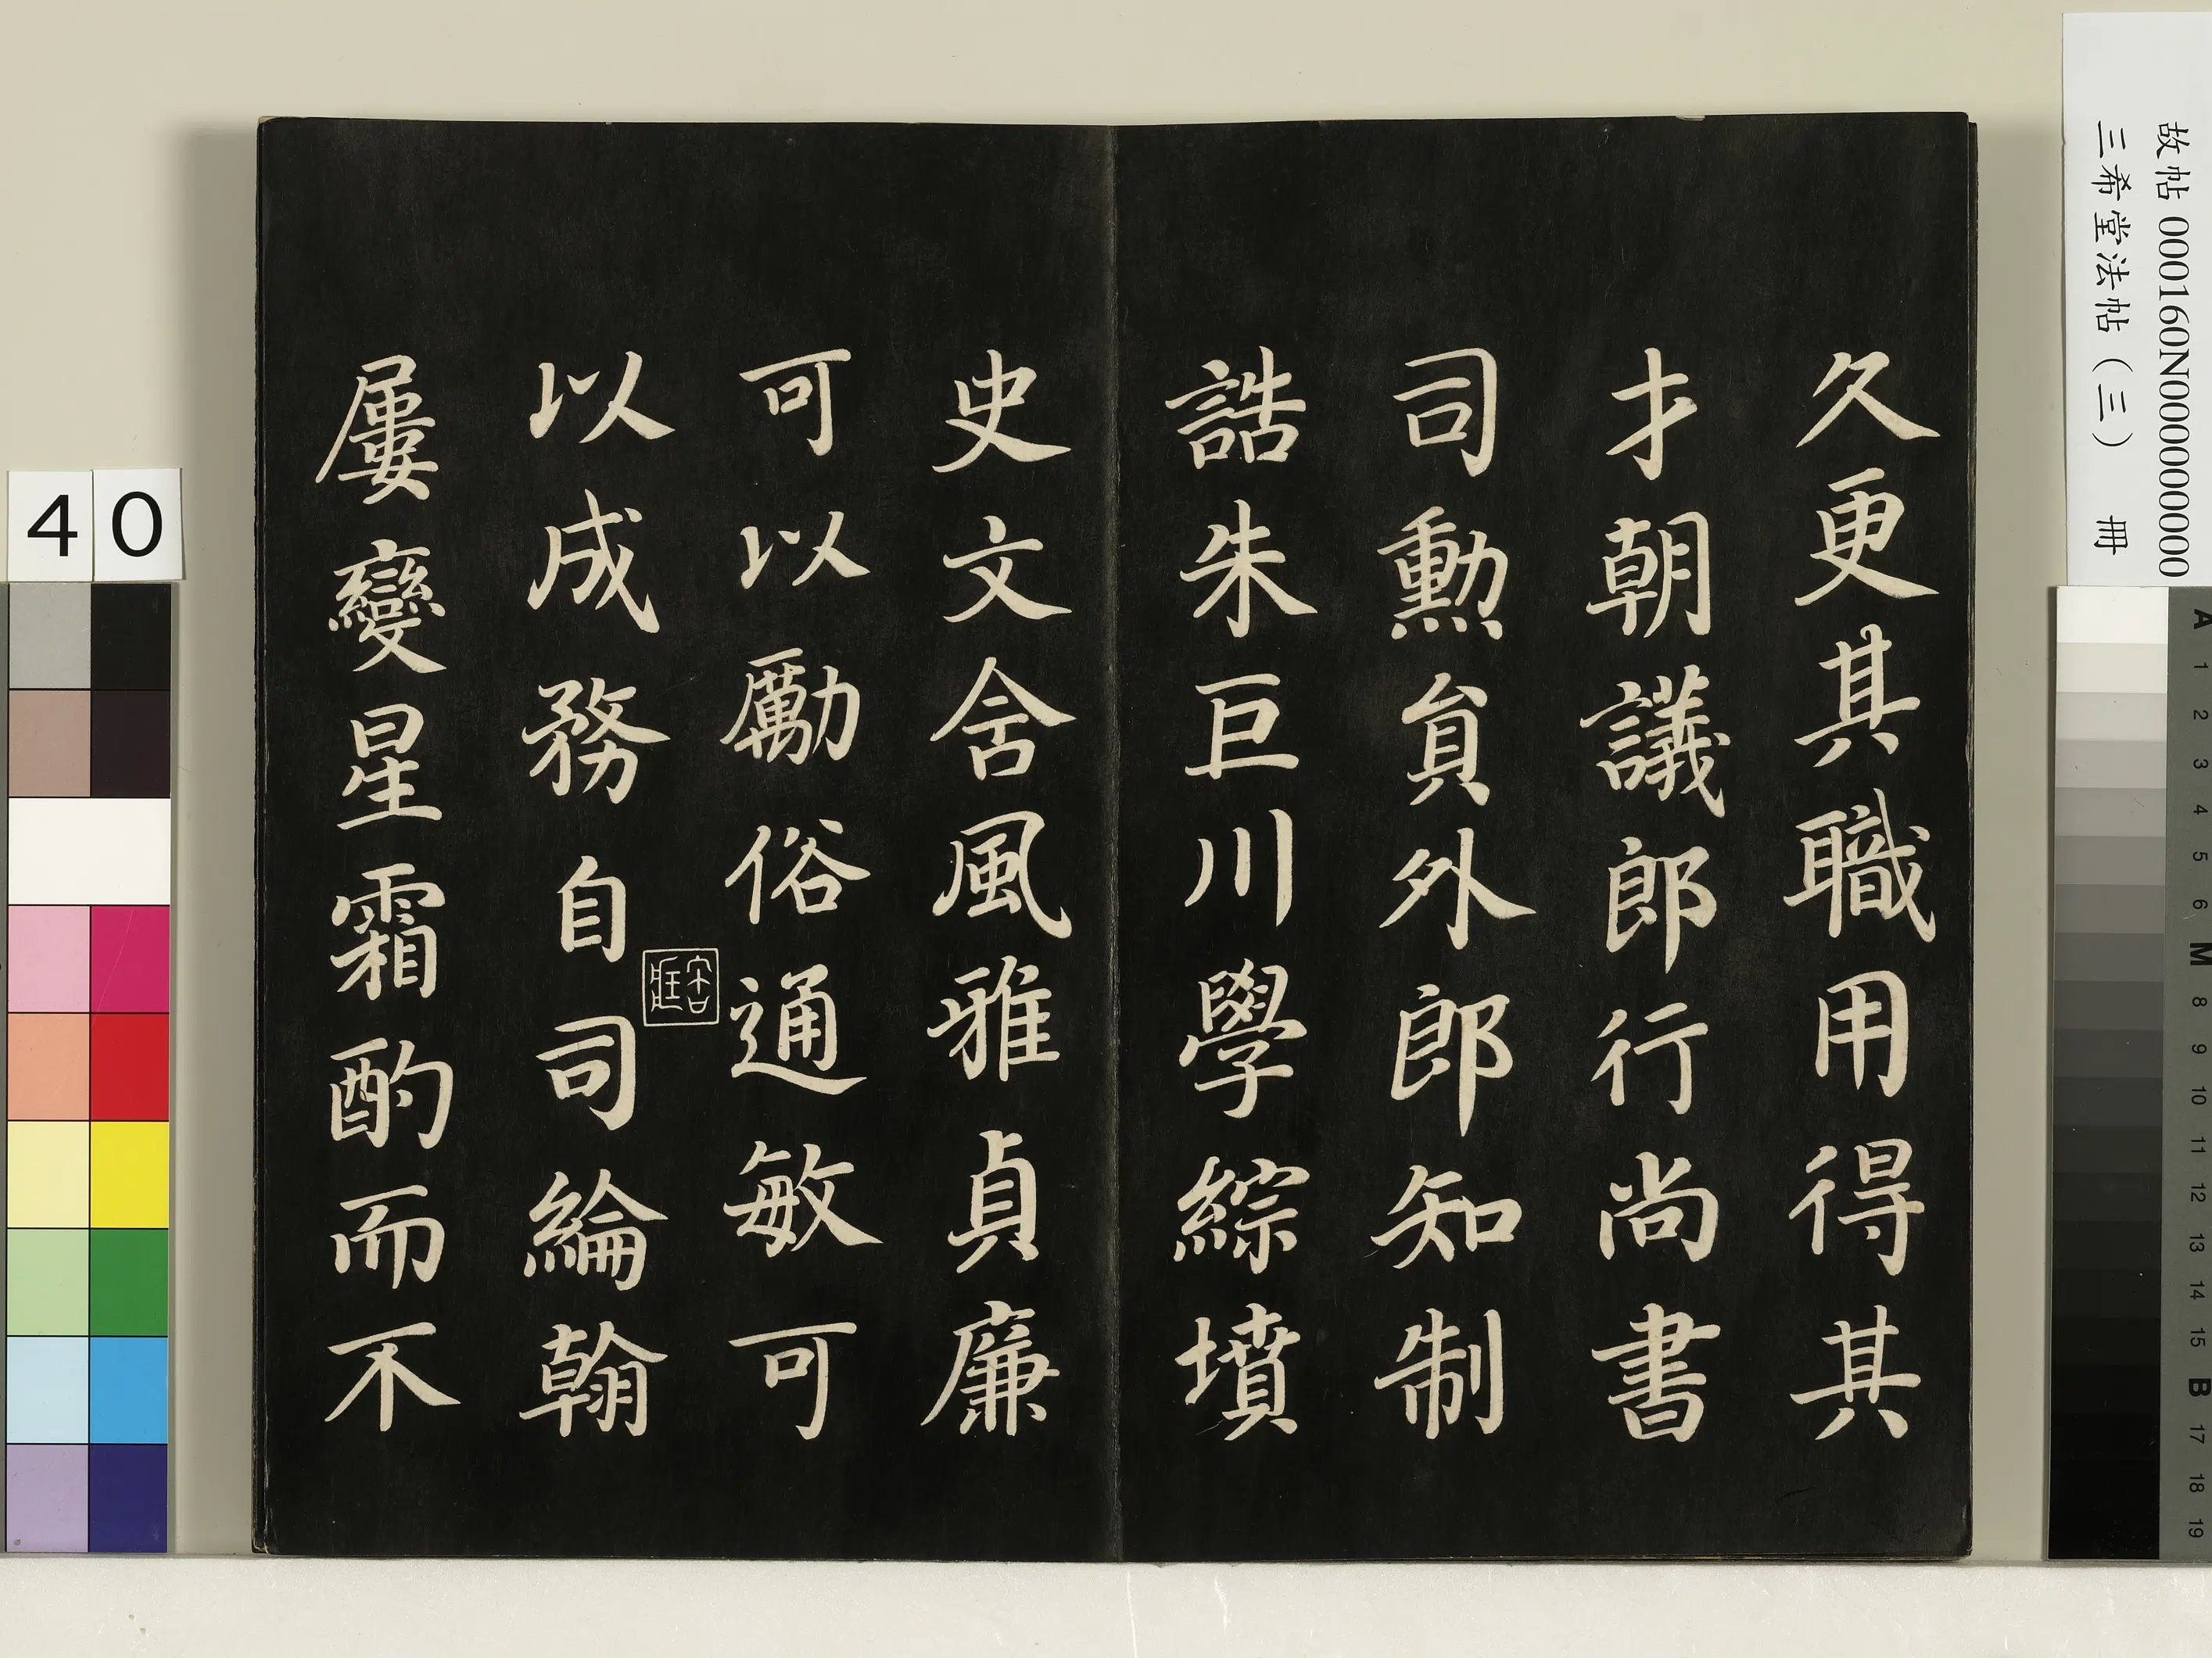 久更其職用得其
才朝議郎行尚書
司勳負外郎知制
誥朱巨川學綜墳
史文舍風雅貞廉
可以勵俗通敏可
以成務自司綸翰
屢變星霜酌而不
故帖 000160N000000000
三希堂法帖(三) 冊
40
A 1 2 3 4 5 6 M 8 9 10 11 12 13 14 15 B 17 18 19